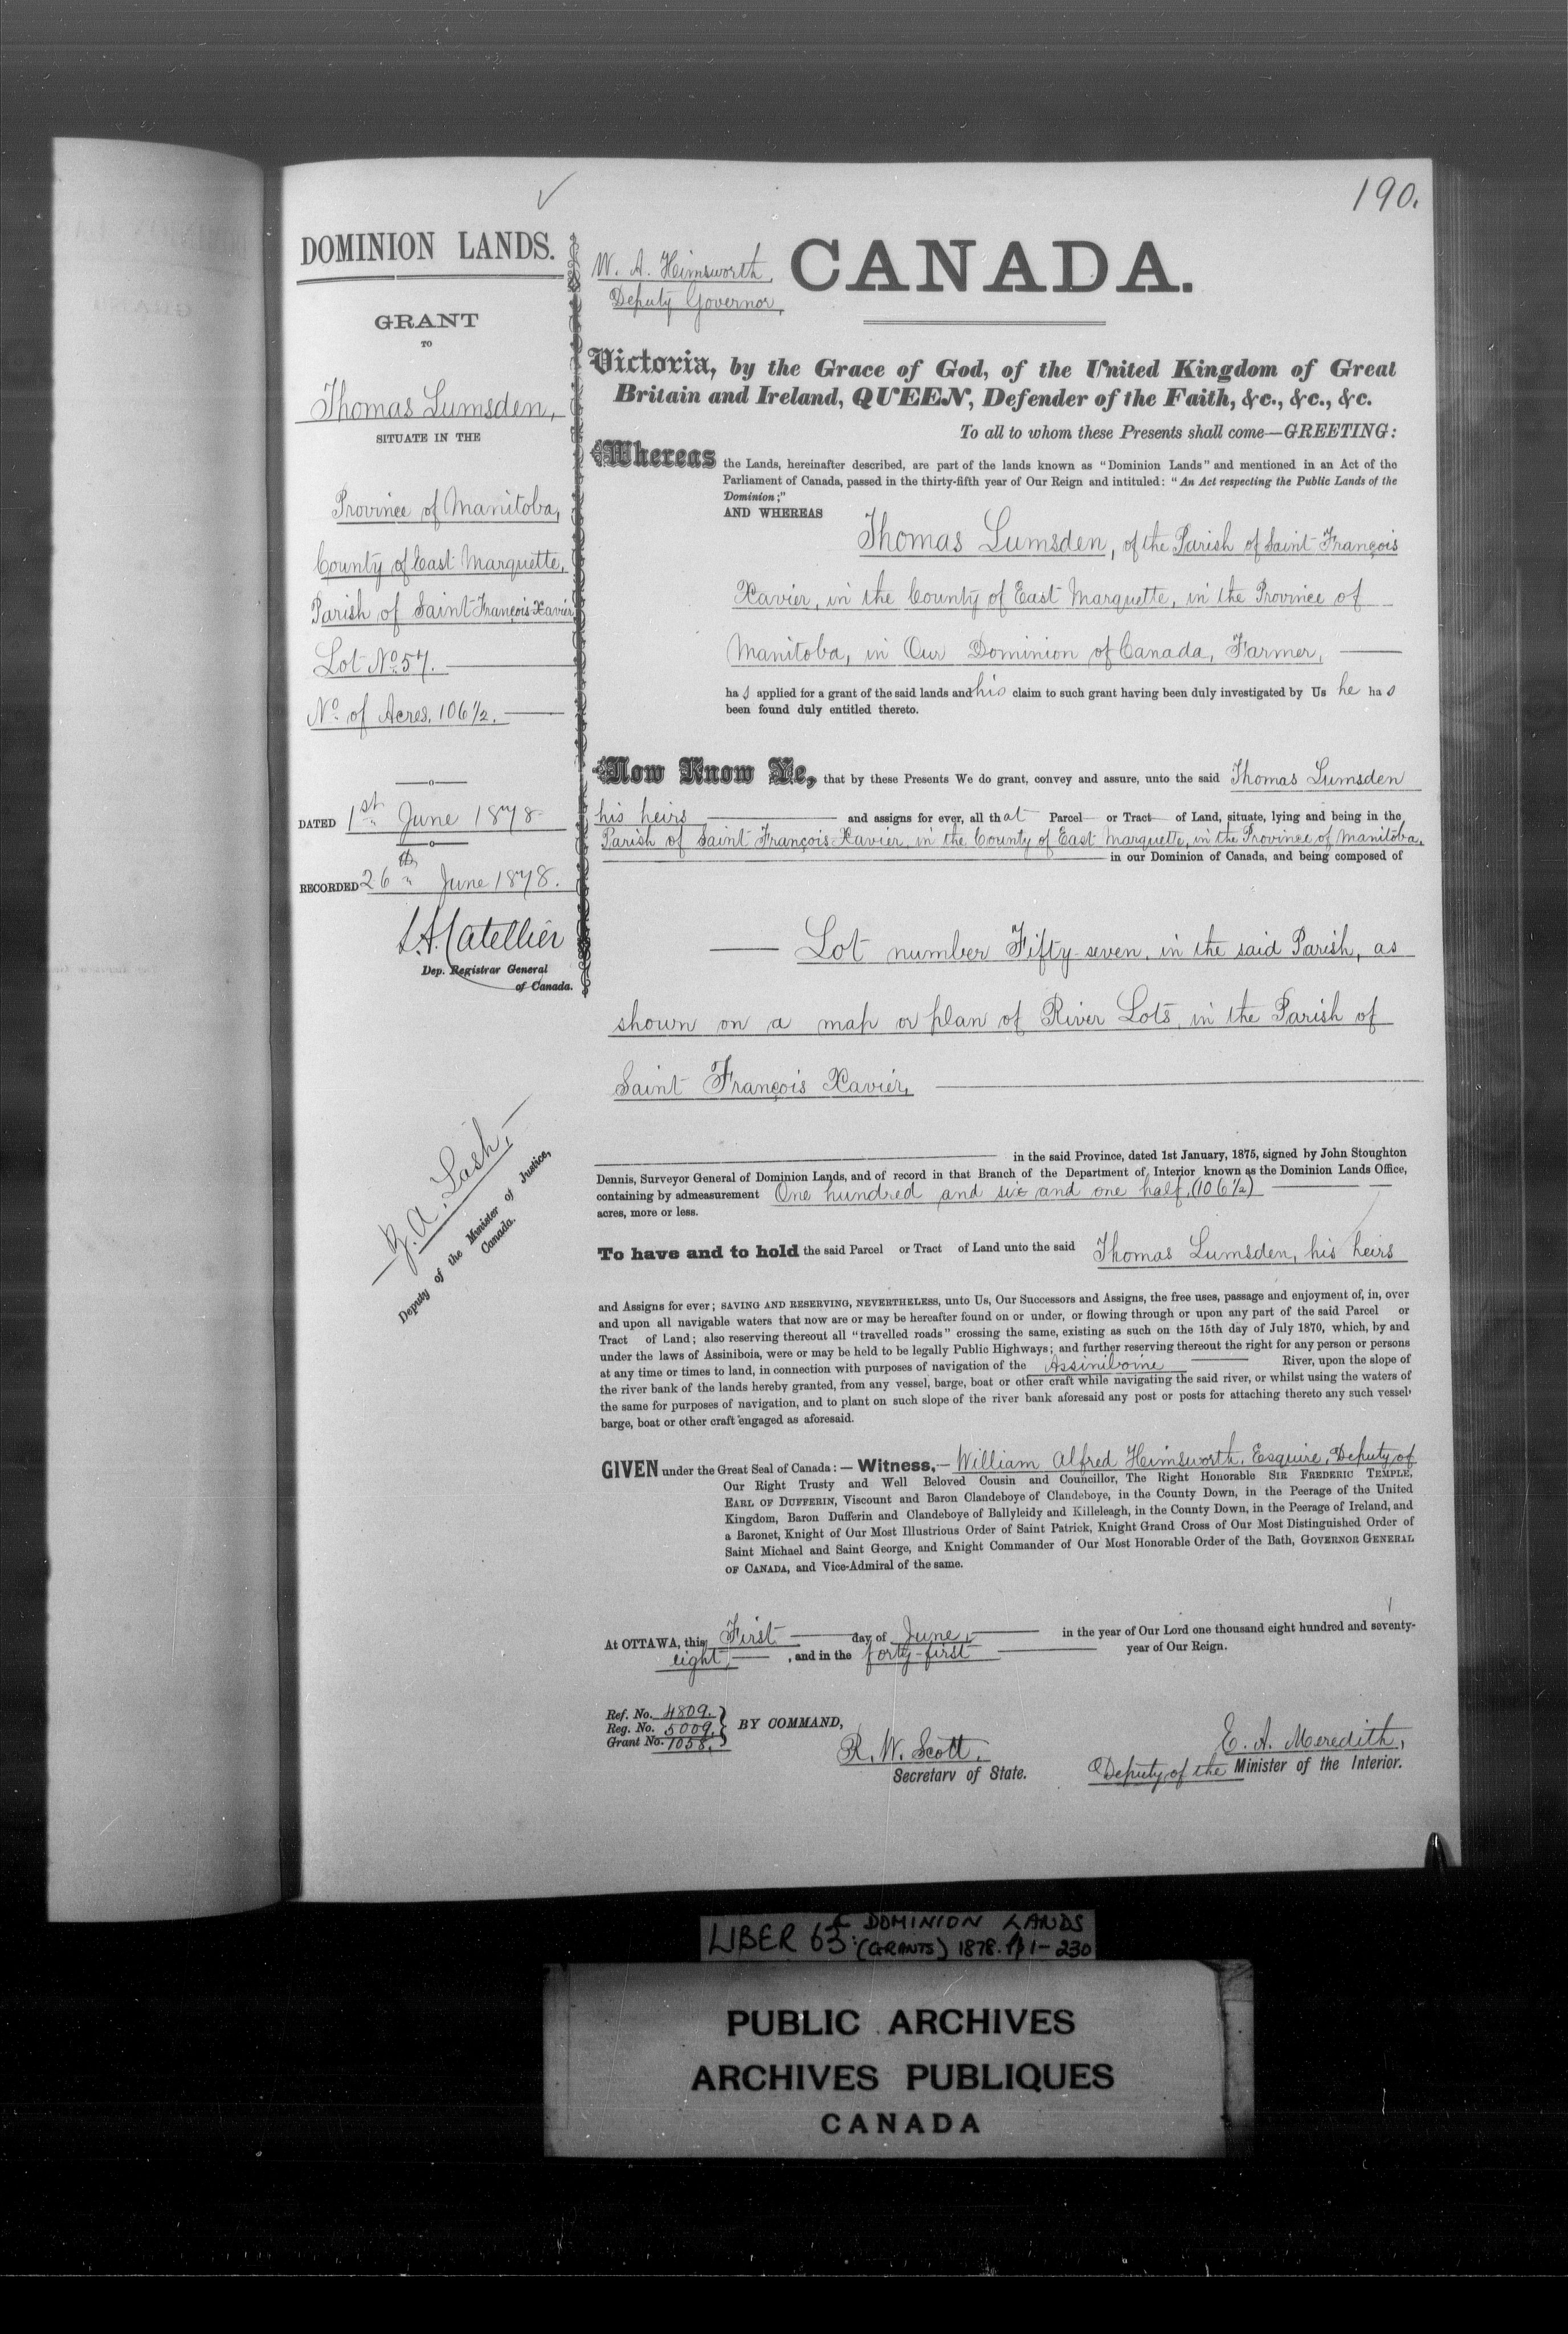 190.
DOMINION LANDS.
GRANT
TO
Thomas Lumsden,
SITUATE IN THE
Province of Manitoba,
County of East Marquette,
Parish of Saint François Xavier
Lot No. 57.
No. of Acres, 106½.
DATED 1st June 1878
RECORDED 26th June 1878.
L. A. Catellier
Dep. Registrar General
of Canada.
Z. A. Lash,
Deputy of the Minister of Justice,
Canada.
W. A. Himsworth,
Deputy Governor,
CANADA.
Victoria, by the Grace of God, of the United Kingdom of Great
Britain and Ireland, QUEEN, Defender of the Faith, &c., &c., &c.
To all to whom these Presents shall come—GREETING:
Whereas the Lands, hereinafter described, are part of the lands known as "Dominion Lands" and mentioned in an Act of the
Parliament of Canada, passed in the thirty-fifth year of Our Reign and intituled: "An Act respecting the Public Lands of the
Dominion;"
AND WHEREAS
Thomas Lumsden, of the Parish of Saint François
Xavier, in the County of East Marquette, in the Province of
Manitoba, in Our Dominion of Canada, Farmer,
ha s applied for a grant of the said lands and his claim to such grant having been duly investigated by Us he ha s
been found duly entitled thereto.
Now Know Ye, that by these Presents We do grant, convey and assure, unto the said Thomas Lumsden
his heirs and assigns for ever, all that Parcel or Tract of Land, situate, lying and being in the
Parish of Saint François Xavier, in the County of East Marquette, in the Province of Manitoba,
in our Dominion of Canada, and being composed of
Lot number Fifty-seven, in the said Parish, as
shown on a map or plan of River Lots, in the Parish of
Saint François Xavier,
in the said Province, dated 1st January, 1875, signed by John Stoughton
Dennis, Surveyor General of Dominion Lands, and of record in that Branch of the Department of Interior known as the Dominion Lands Office,
containing by admeasurement One hundred and six and one half, (106½)
acres, more or less.
To have and to hold the said Parcel or Tract of Land unto the said Thomas Lumsden, his heirs
and Assigns for ever; SAVING AND RESERVING, NEVERTHELESS, unto Us, Our Successors and Assigns, the free uses, passage and enjoyment of, in, over
and upon all navigable waters that now are or may be hereafter found on or under, or flowing through or upon any part of the said Parcel or
Tract of Land; also reserving thereout all "travelled roads" crossing the same, existing as such on the 15th day of July 1870, which, by and
under the laws of Assiniboia, were or may be held to be legally Public Highways; and further reserving thereout the right for any person or persons
at any time or times to land, in connection with purposes of navigation of the Assiniboine River, upon the slope of
the river bank of the lands hereby granted, from any vessel, barge, boat or other craft while navigating the said river, or whilst using the waters of
the same for purposes of navigation, and to plant on such slope of the river bank aforesaid any post or posts for attaching thereto any such vessel,
barge, boat or other craft engaged as aforesaid.
GIVEN under the Great Seal of Canada:—Witness,—William Alfred Himsworth, Esquire, Deputy of
Our Right Trusty and Well Beloved Cousin and Councillor, The Right Honorable SIR FREDERIC TEMPLE,
EARL OF DUFFERIN, Viscount and Baron Clandeboye of Clandeboye, in the County Down, in the Peerage of the United
Kingdom, Baron Dufferin and Clandeboye of Ballyleidy and Killeleagh, in the County Down, in the Peerage of Ireland, and
a Baronet, Knight of Our Most Illustrious Order of Saint Patrick, Knight Grand Cross of Our Most Distinguished Order of
Saint Michael and Saint George, and Knight Commander of Our Most Honorable Order of the Bath, GOVERNOR GENERAL
OF CANADA, and Vice-Admiral of the same.
At OTTAWA, this First day of June, in the year of Our Lord one thousand eight hundred and seventy-
eight, , and in the forty-first year of Our Reign.
Ref. No. 4809.
Reg. No. 5009.
Grant No. 1058.
BY COMMAND,
R. W. Scott,
Secretary of State.
E. A. Meredith,
Deputy of the Minister of the Interior.
LIBER 63: DOMINION LANDS
(GRANTS) 1878. pp 1-230
PUBLIC ARCHIVES
ARCHIVES PUBLIQUES
CANADA